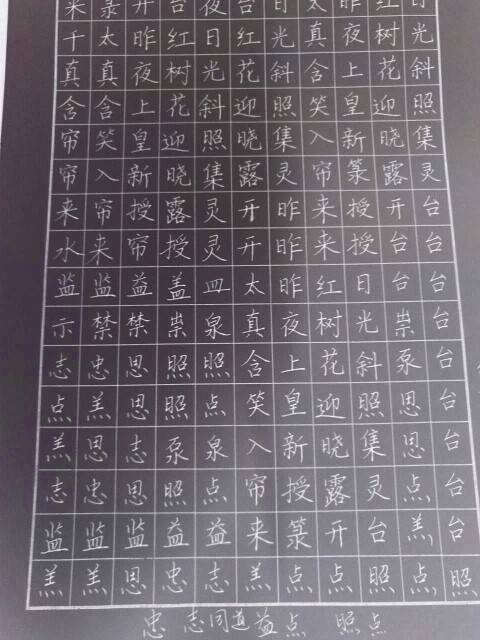 来 箓 开 台 夜 台 太 昨 红 日
千 太 昨 红 日 红 光 真 夜 树 光
真 真 夜 树 光 花 斜 含 上 花 斜
含 含 上 花 斜 迎 照 笑 皇 迎 照
帘 笑 皇 迎 照 晓 集 入 新 晓 集
帘 入 新 晓 集 露 灵 帘 箓 露 灵
来 帘 授 露 灵 开 昨 来 授 开 台
水 来 帘 授 灵 开 昨 来 授 台 台
监 监 益 盖 皿 太 昨 红 日 台 台
示 禁 禁 祟 泉 真 夜 树 光 祟 台
志 忠 思 照 照 含 上 花 斜 泵 台
点 羔 思 照 点 笑 皇 迎 照 思 台
羔 思 志 泵 泉 入 新 晓 集 思 台
志 忠 思 照 点 帘 授 露 灵 点 台
监 监 监 益 益 来 箓 开 台 羔 台
羔 羔 思 忠 志 羔 点 点 照 点 照
忠 志同道益点 照点